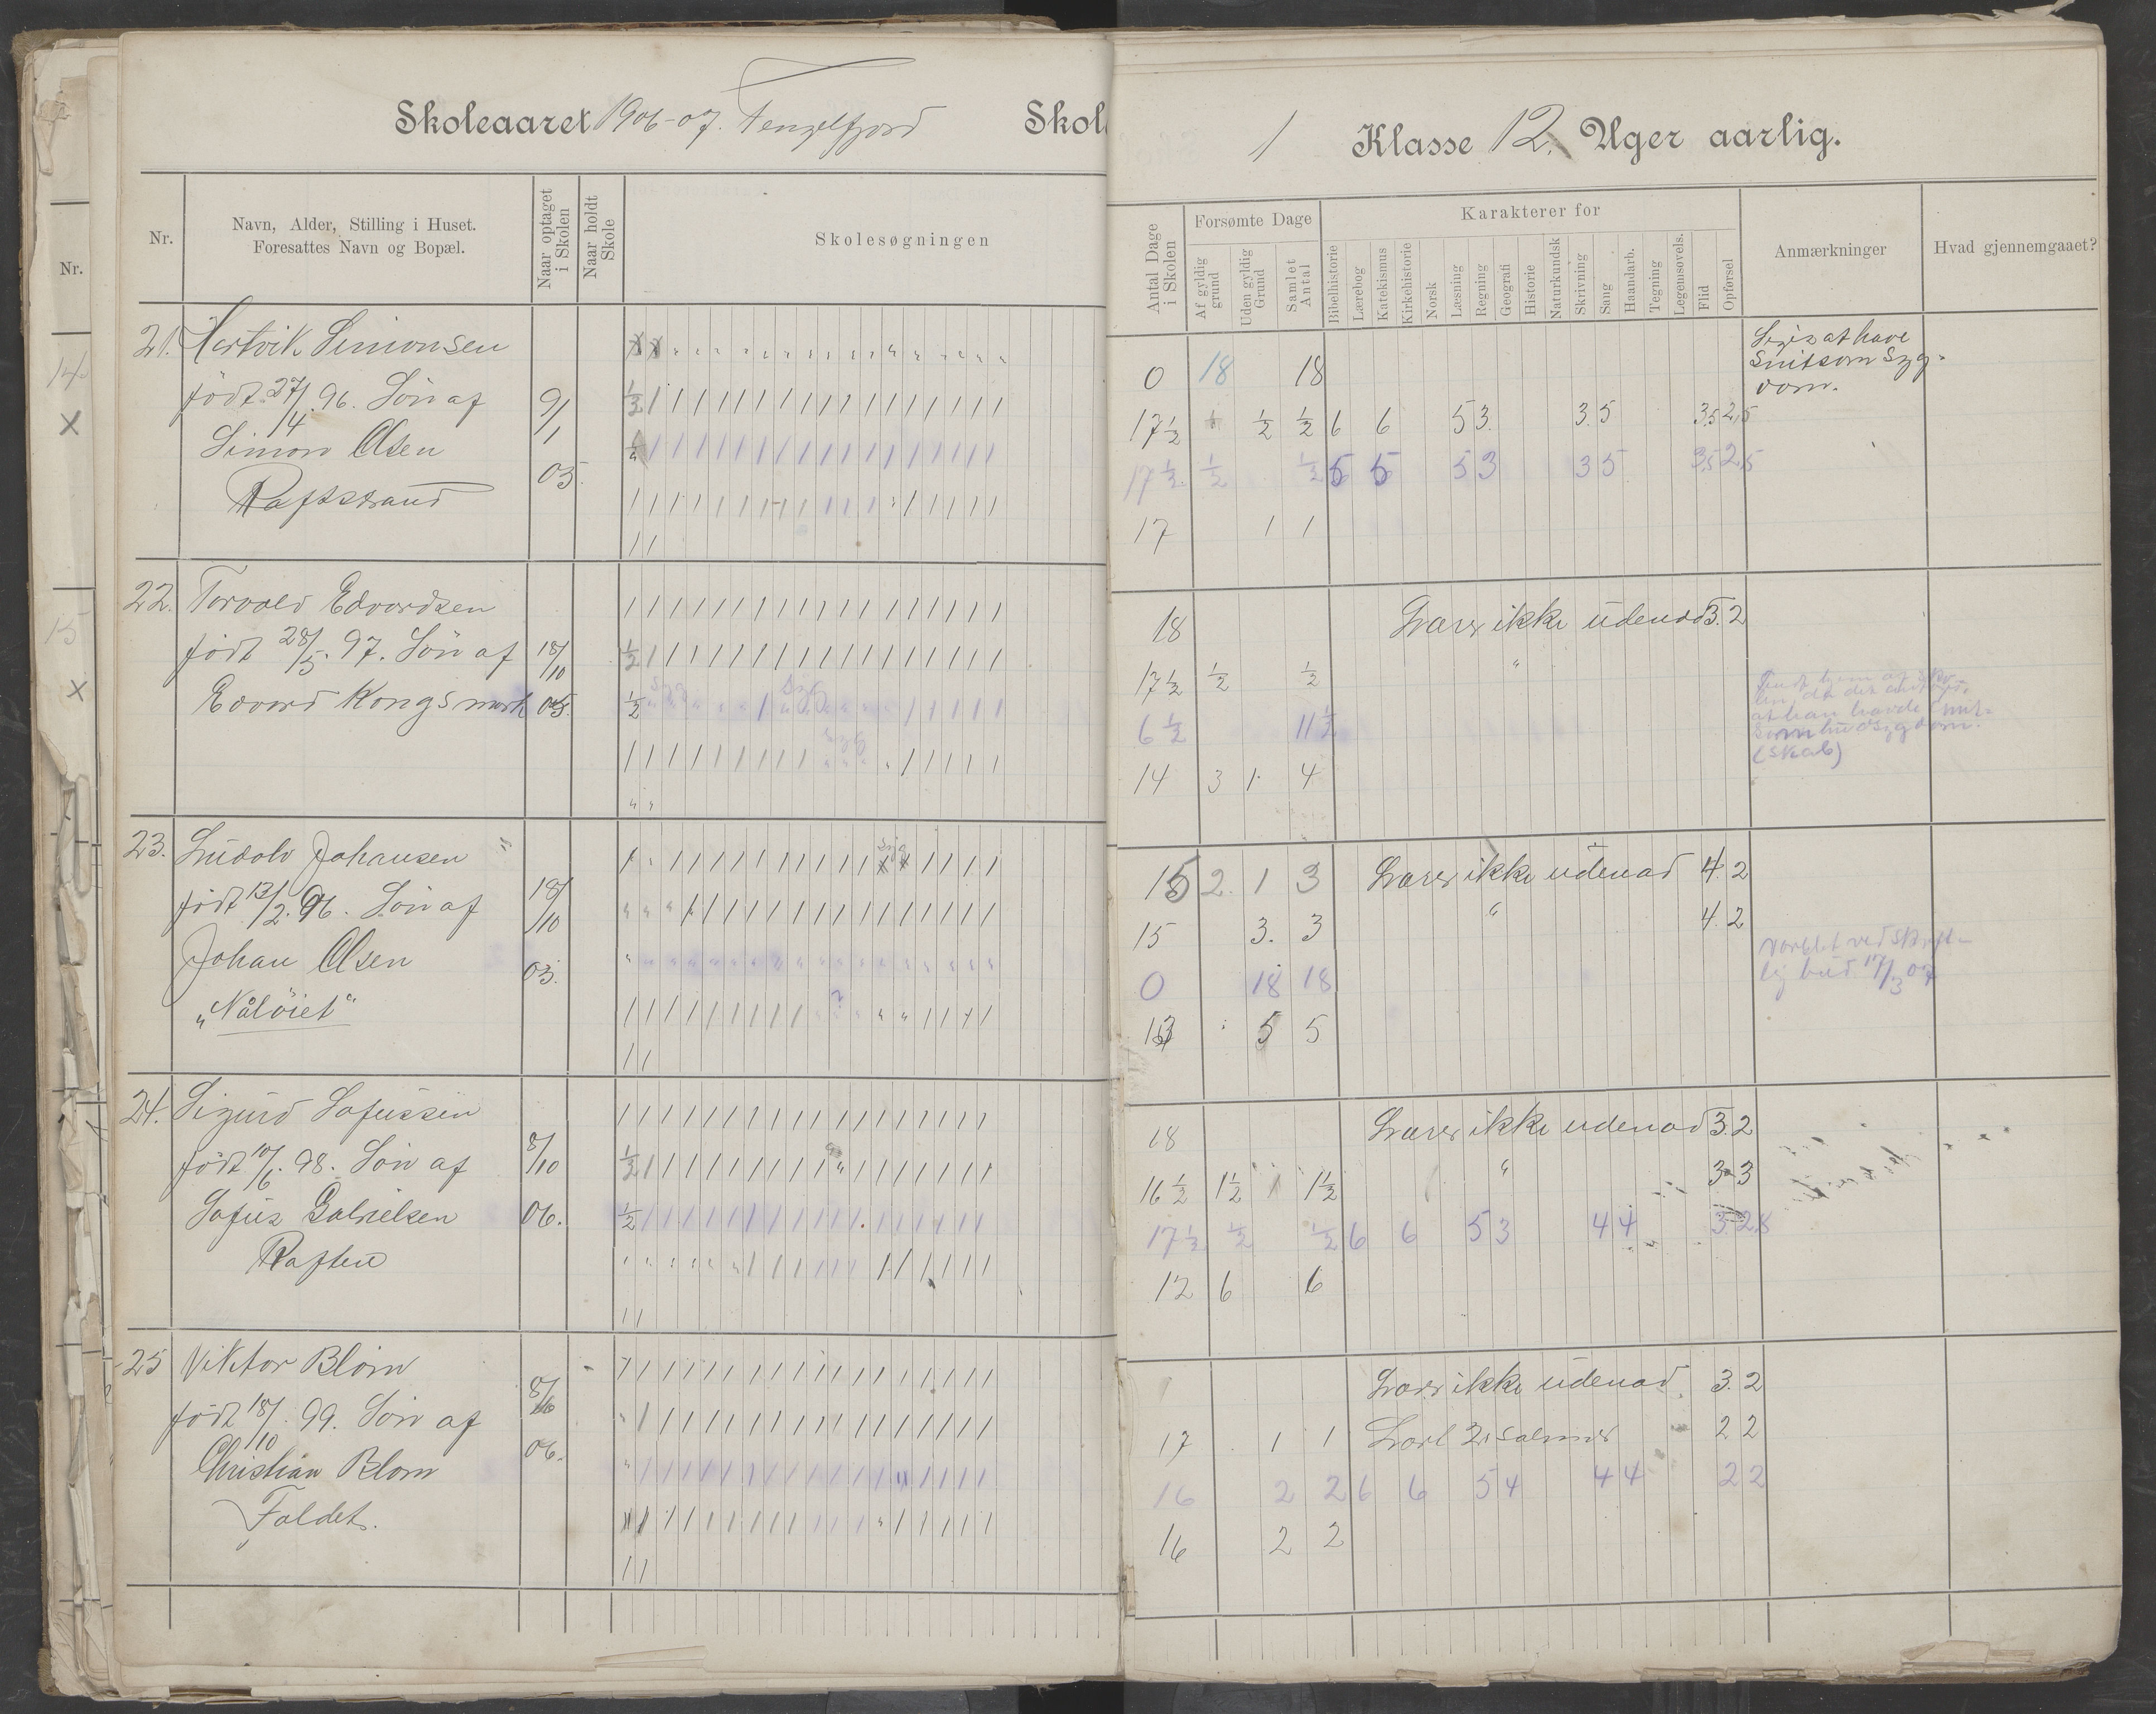 Skoleaaret 1906-07. Tengelfjord Skol
1 Klasse 12. Uger aarlig.
Nr.
Nr.
Navn, Alder, Stilling i Huset.
Foresattes Navn og Bopæl.
Naar optaget i Skolen
Naar holdt Skole
Skolesøgningen
Antal Dage i Skolen
Forsømte Dage
Af gyldig grund
Uden gyldig Grund
Samlet Antal
Karakterer for
Bibelhistorie
Lærebog
Katekismus
Kirkehistorie
Norsk
Læsning
Regning
Geografi
Historie
Naturkundsk
Skrivning
Sang
Haandarb.
Tegning
Legemsøvels.
Flid
Opførsel
Anmærkninger
Hvad gjennemgaaet?
14
X
15
X
21. Hartvik Simonsen
født 27/4. 96. Søn af
Simon Olsen
Raftstrand
9/1
05.
0 18 18
Siges at have
smitsom syg-
dom.
17½ ½ ½ 6 6 5 3. 3. 5 3,5 2,5
17½ ½ ½ 5 5 5 3 3 5 3,5 2,5
17 1 1
22. Torvald Edvardsen
født 28/5. 97. Søn af
Edvard Kongsmark
18/10
05.
18 Læser ikke udenad 3. 2
17½ ½ ½ "
6½ 11½
at han havde smit-
som hudsygdom.
(skab)
14 3 1 4
23. Ludolv Johansen
født 13/2. 96. Søn af
Johan Olsen
„Nåløiet“
18/10
03.
15 2. 1 3 Læser ikke udenad 4. 2
15 3. 3 " 4. 2
0 18 18
Varslet ved skrift-
lig bud 17/3 07
13 5 5
24. Sigurd Sofussen
født 10/6. 98. Søn af
Sofus Gabrielsen
Raften
8/10
06.
18 Læser ikke udenad 3. 2
16½ 1½ 1½ " 3 3
17½ ½ ½ 6 6 5 3 4 4 3. 2,8
12 6 6
25 Viktor Blom
født 18/10. 99. Søn af
Christian Blom
Foldet.
8/10
06.
Læser ikke udenad. 3. 2
17 1 1 Lært 2 salmer 2 2
16 2 2 6 6 5 4 4 4 2 2
16 2 2